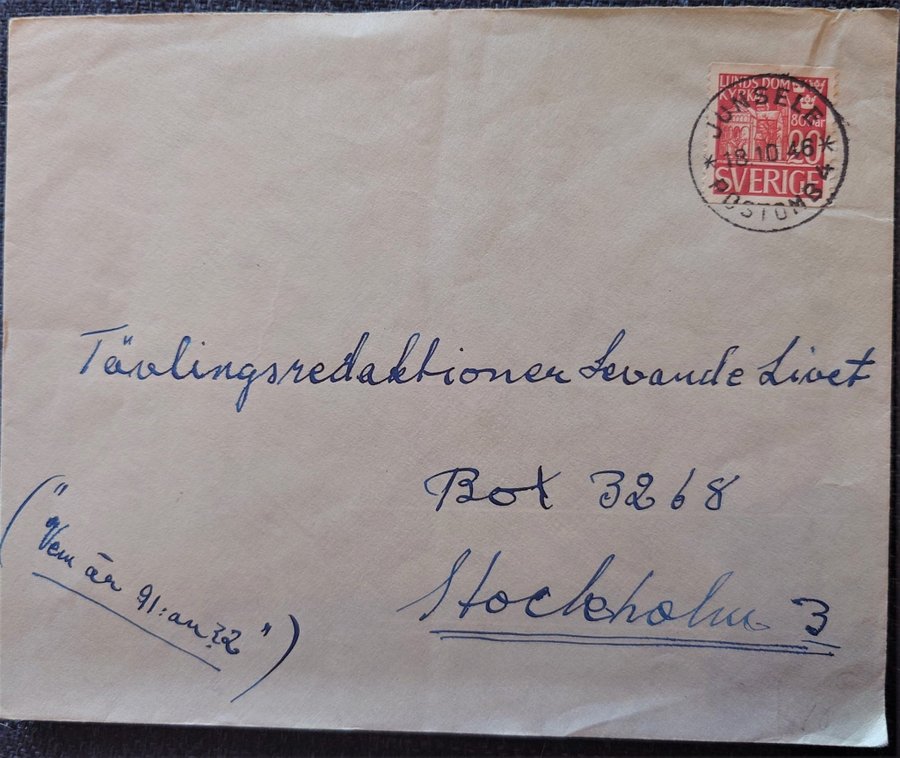 LUNDS DOM
KYRKA
800 år
20
SVERIGE
JUNSELE
* 18 10 46 *
POSTOMB 4
Tävlingsredaktionen Levande Livet
Box 3268
Stockholm 3
("Vem är 91:an 32")